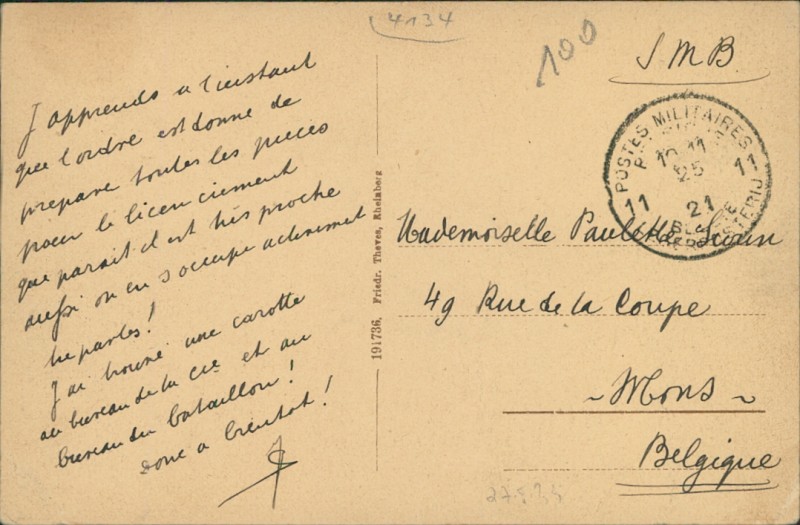 4134
100
S M B
POSTES MILITAIRES
11 25 11
11 21
J'apprends a l'instant
que l'ordre est donne de
prepare toutes les pieces
pour le licenciement
que parait-il est très proche
aussi on en s'occupe activement
tu parles!
J'ai trouvé une carotte
au bureau de la Cie et au
bureau du bataillon!
donc a bientot!
191736, Friedr. Theves, Rheinberg
Mademoiselle Paulette
49 Rue de la Coupe
~ Mons ~
Belgique